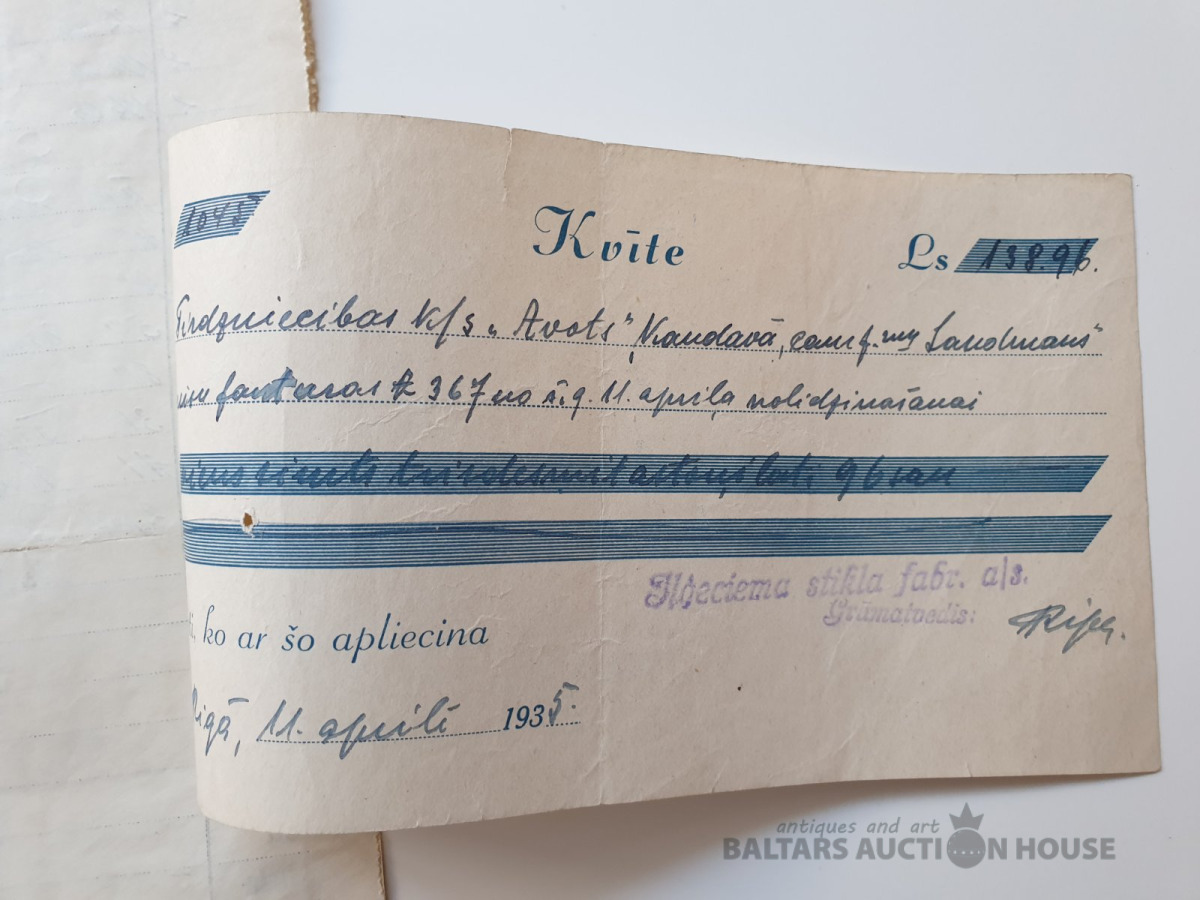 1045
Kvīte
Ls 138.96.
Tirdzniecības k/s „Avots”, Kandavā, caur f-mu Landmans”
fakturas № 367 no š.g. 11. aprīļa nolīdzināšanai
viens simts trīsdesmit astoņi lati 96 san
ko ar šo apliecina
Iļģeciema stikla fabr. a/s.
Grāmatvedis:
Rīgā, 11. aprīlī 1935.
antiques and art
BALTARS AUCTION HOUSE